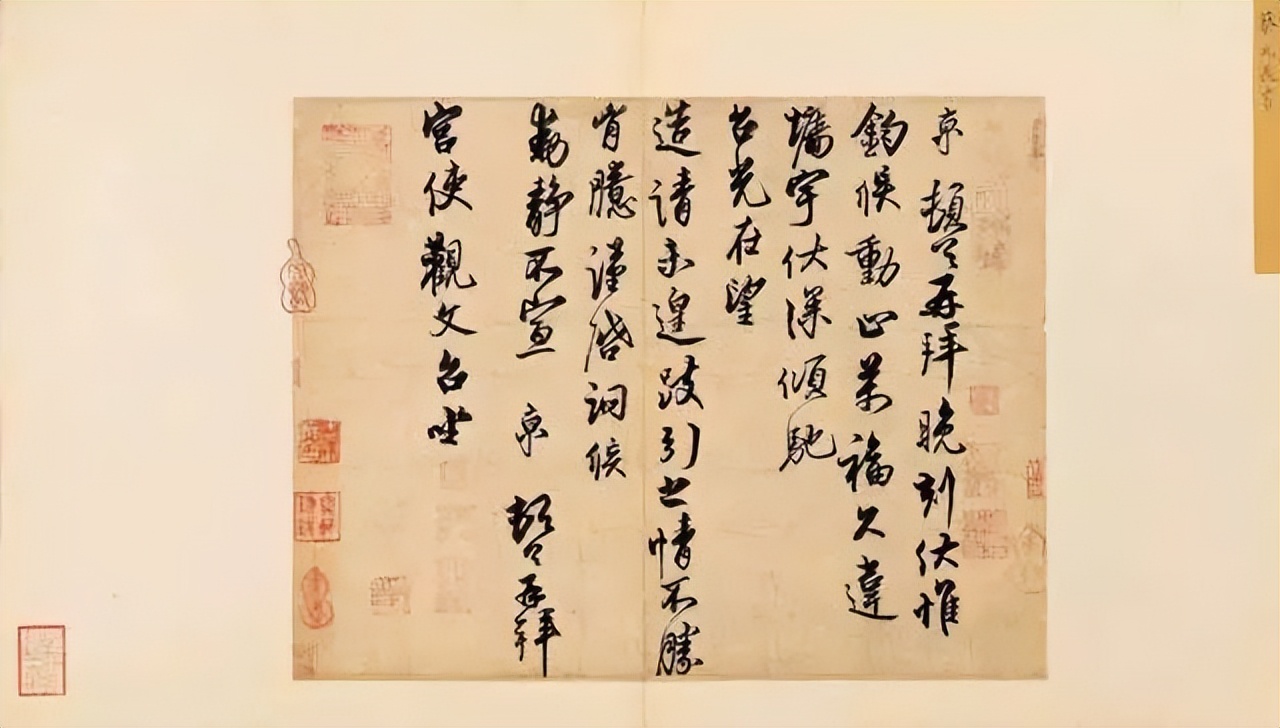 京 頓首再拜晚刻伏惟
鈞候動止萬福久違
墉宇伏深傾馳
台光在望
造請未遑跂引之情不勝
胷臆謹啓詢候
動靜不宣 京 頓首再拜
宮使觀文台坐